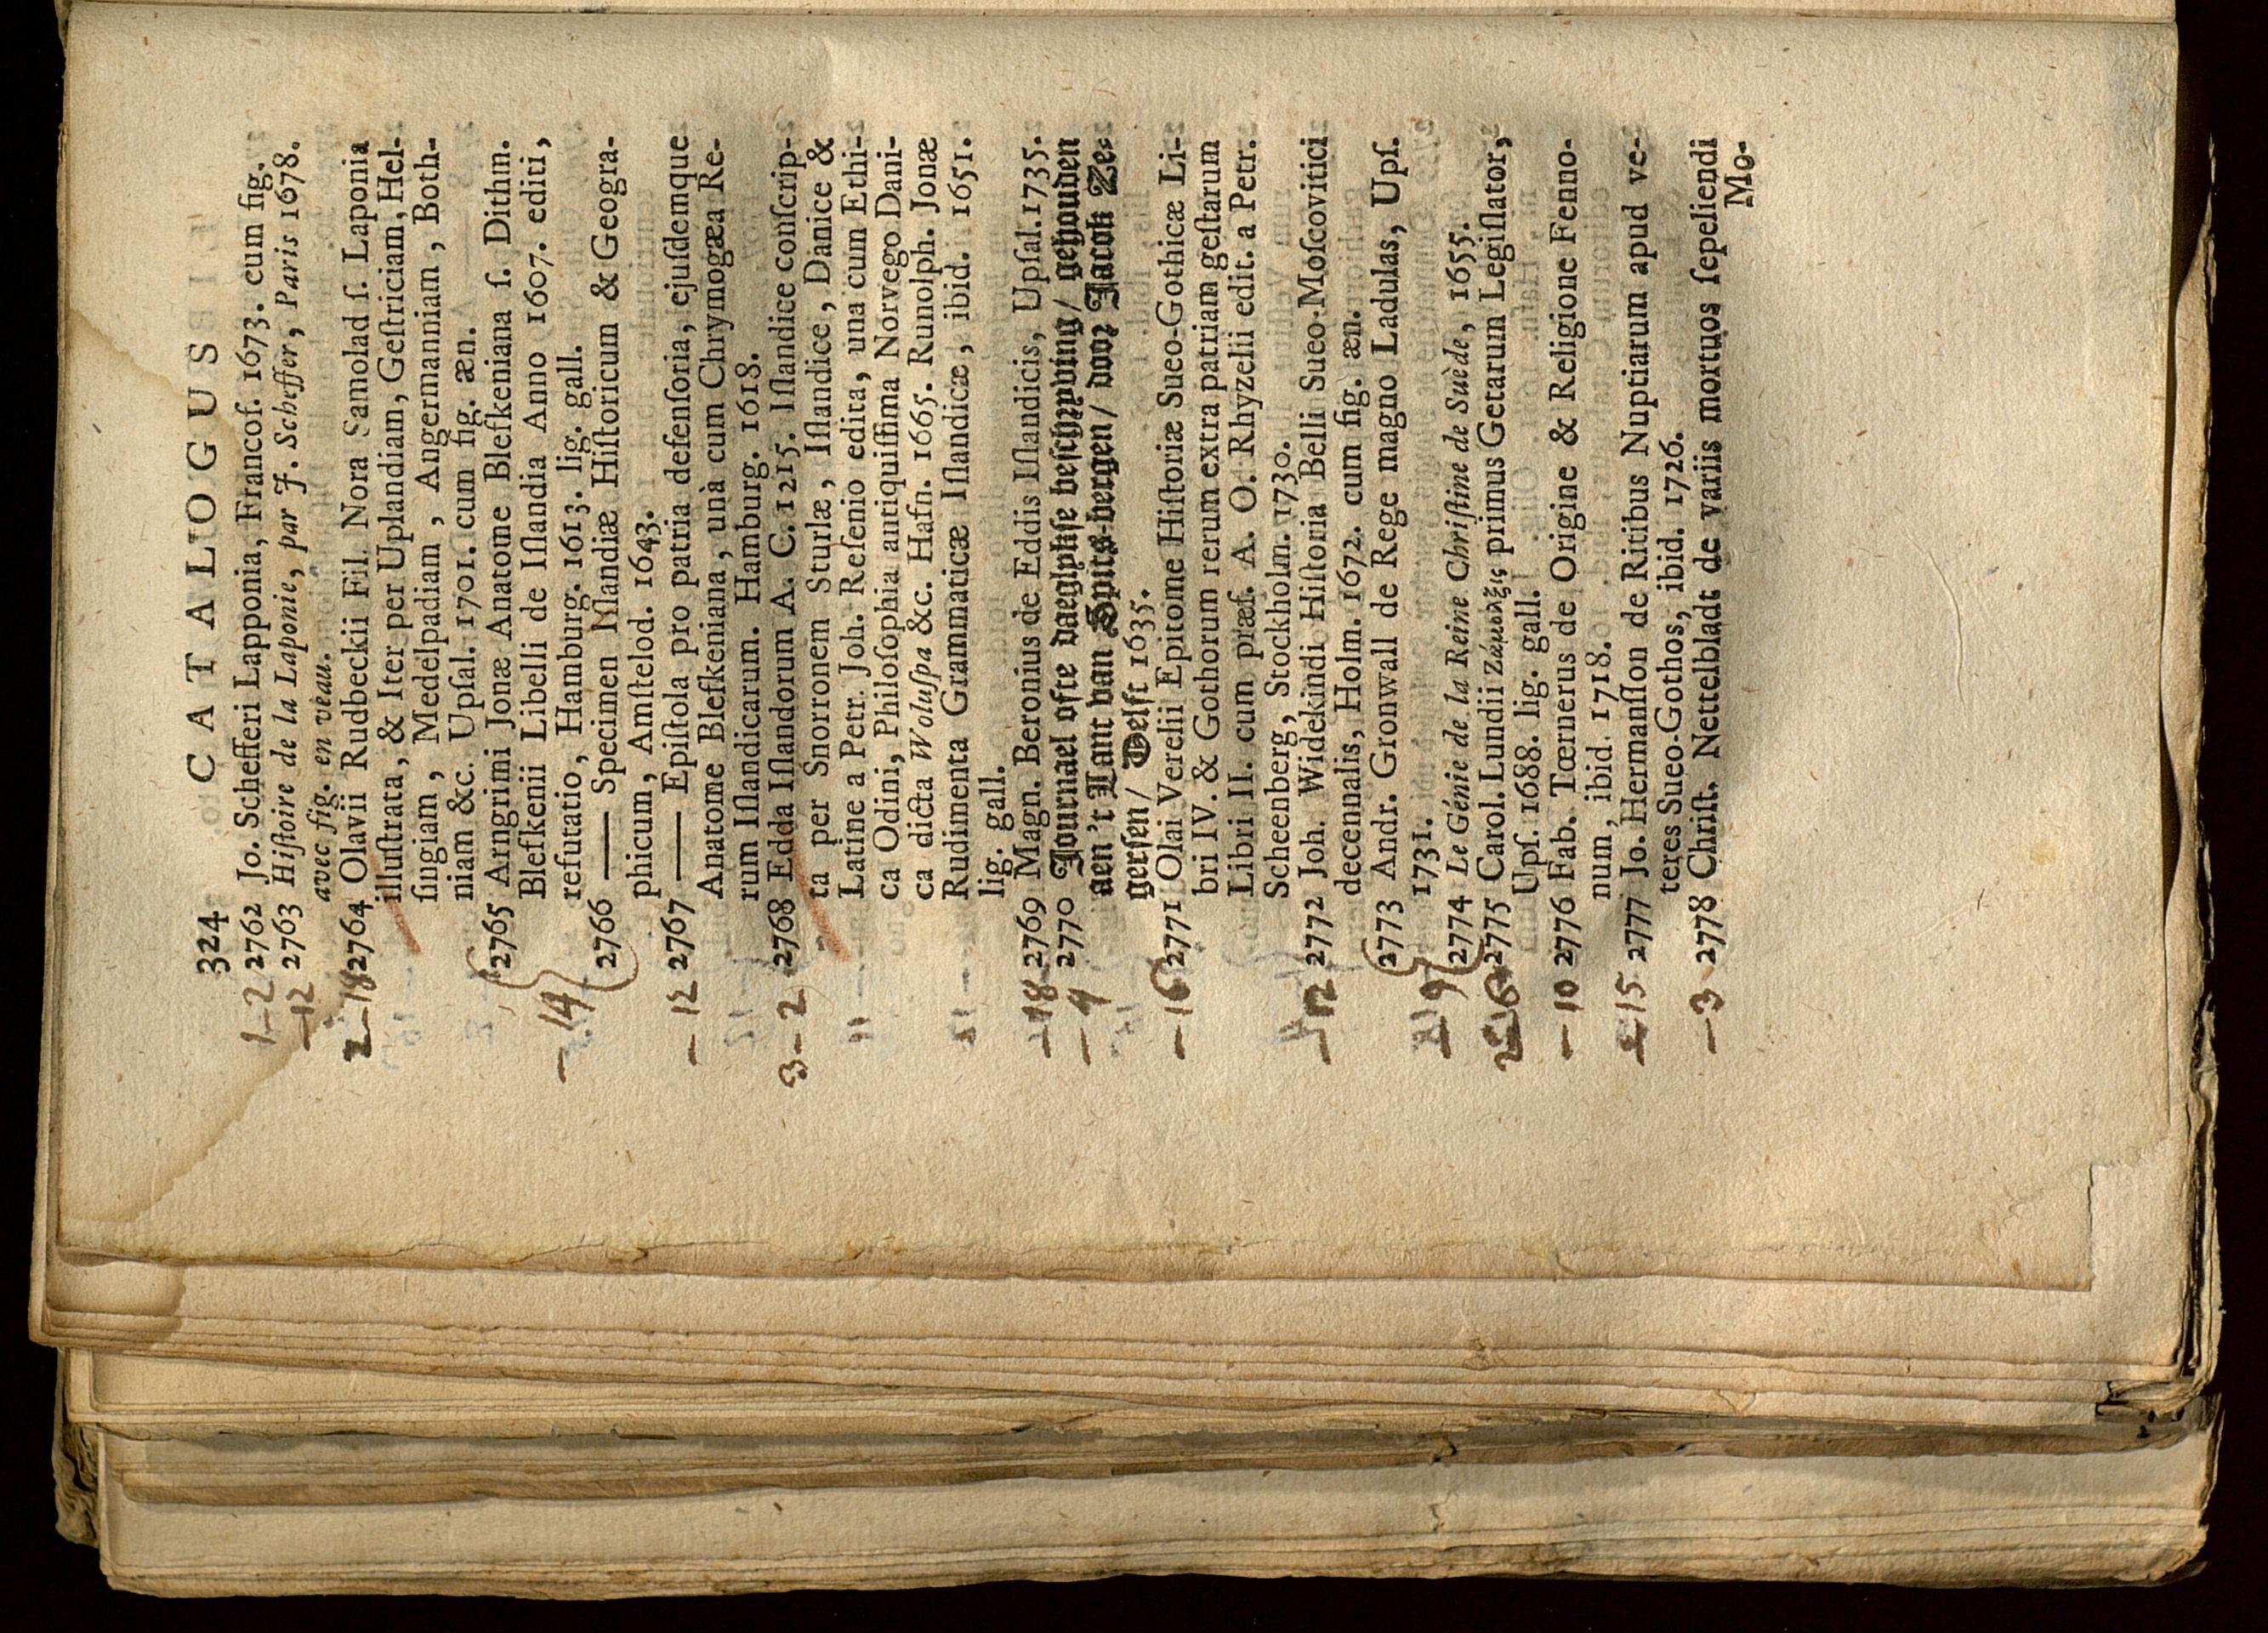 324 CATALOGUS
1-2 2762 Jo. Schefferi Lapponia, Francof. 1673. cum fig.
-12 2763 Hiſtoire de la Laponie, par J. Scheffer, Paris 1678.
avec fig. en veau.
2-18 2764 Olavii Rudbeckii Fil. Nora Samolad ſ. Laponia
illuſtrata, & Iter per Uplandiam, Geſtriciam, Hel-
ſingiam, Medelpadiam, Angermanniam, Both-
niam &c. Upſal. 1701. cum fig. æn.
2765 Arngrimi Jonæ Anatome Blefkeniana ſ. Dithm.
Blefkenii Libelli de Iſlandia Anno 1607. editi,
refutatio, Hamburg. 1613. lig. gall.
- 14 2766 —— Specimen Iſlandiæ Hiſtoricum & Geogra-
phicum, Amſtelod. 1643.
- 12 2767 —— Epiſtola pro patria defenſoria, ejuſdemque
Anatome Blefkeniana, unà cum Chrymogæa Re-
rum Iſlandicarum. Hamburg. 1618.
3-2 2768 Edda Iſlandorum A. C. 1215. Iſlandice conſcrip-
ta per Snorronem Sturlæ, Iſlandice, Danice &
Latine a Petr. Joh. Reſenio edita, una cum Ethi-
ca Odini, Philoſophia antiquiſſima Norvego Dani-
ca dicta Woluſpa &c. Hafn. 1665. Runolph. Jonæ
Rudimenta Grammaticæ Iſlandicæ, ibid. 1651.
lig. gall.
-18 2769 Magn. Beronius de Eddis Iſlandicis, Upſal. 1735.
- 4 2770 Journael ofte daeglykſe beſchryving/ gehouden
aen 't Lant van Spits-bergen/ door Jacob Ze-
gerſen/ Delft 1635.
-16 2771 Olai Verelii Epitome Hiſtoriæ Sueo-Gothicæ Li-
bri IV. & Gothorum rerum extra patriam geſtarum
Libri II. cum præf. A. O. Rhyzelii edit. a Petr.
Scheenberg, Stockholm. 1730.
-12 2772 Joh. Widekindi Hiſtoria Belli Sueo-Moſcovitici
decennalis, Holm. 1672. cum fig. æn.
2773 Andr. Gronwall de Rege magno Ladulas, Upſ.
1731.
2774 Le Génie de la Reine Chriſtine de Suède, 1655.
2775 Carol. Lundii Ζάμολξις primus Getarum Legiſlator,
Upſ. 1688. lig. gall.
- 10 2776 Fab. Tœrnerus de Origine & Religione Fenno-
num, ibid. 1718.
15 2777 Jo. Hermanſſon de Ritibus Nuptiarum apud ve-
teres Sueo-Gothos, ibid. 1726.
-3 2778 Chriſt. Nettelbladt de variis mortuos ſepeliendi
Mo-